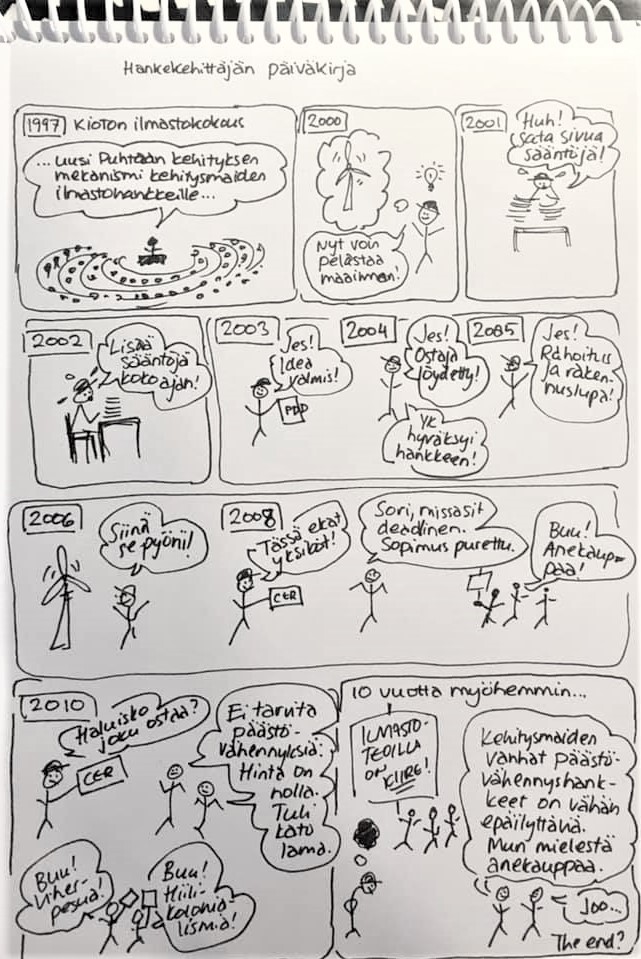 Hankekehittäjän päiväkirja
1997 Kioton ilmastokokous
...uusi Puhtaan kehityksen
mekanismi kehitysmaiden
ilmastohankkeille...
2000
Nyt voin
pelastaa
maailman!
2001
Huh!
Sata sivua
sääntöjä!
2002
Lisää
sääntöjä
koko
ajan!
2003
Jes!
Idea
valmis!
PDD
2004
Jes!
Ostaja
löydetty!
YK
hyväksyi
hankkeen!
2005
Jes!
Rahoitus
ja raken-
nuslupa!
2006
Siinä
se pyörii!
2008
Tässä ekat
yksiköt!
CER
Sori, missasit
deadlinen.
Sopimus purettu.
Buu!
Anekaup-
paa!
2010
Haluisko
joku ostaa?
CER
Ei tarvita
päästö-
vähennyksiä.
Hinta on
nolla.
Tuli
kato
lama.
Buu!
Viher-
pesua!
Buu!
Hiili-
kolonia-
lismia!
10 vuotta myöhemmin...
ILMASTO-
TEOILLA
ON
KIIRE!
Kehitysmaiden
vanhat päästö-
vähennyshank-
keet on vähän
epäilyttäviä.
Mun mielestä
anekauppaa.
Joo...
The end?